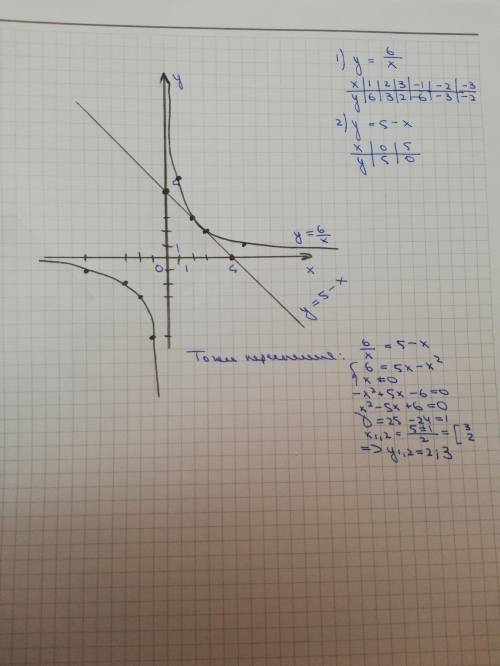 1) y = 6/x
x | 1 | 2 | 3 | -1 | -2 | -3
y | 6 | 3 | 2 | -6 | -3 | -2
2) y = 5 - x
x | 0 | 5
y | 5 | 0
y
5
y = 6/x
1
0 1 5 x
y = 5 - x
Точки пересечения:
6/x = 5 - x
{ 6 = 5x - x²
x ≠ 0
-x² + 5x - 6 = 0
x² - 5x + 6 = 0
D = 25 - 24 = 1
x₁,₂ = (5±1)/2 = [ 3 2
=> y₁,₂ = 2; 3